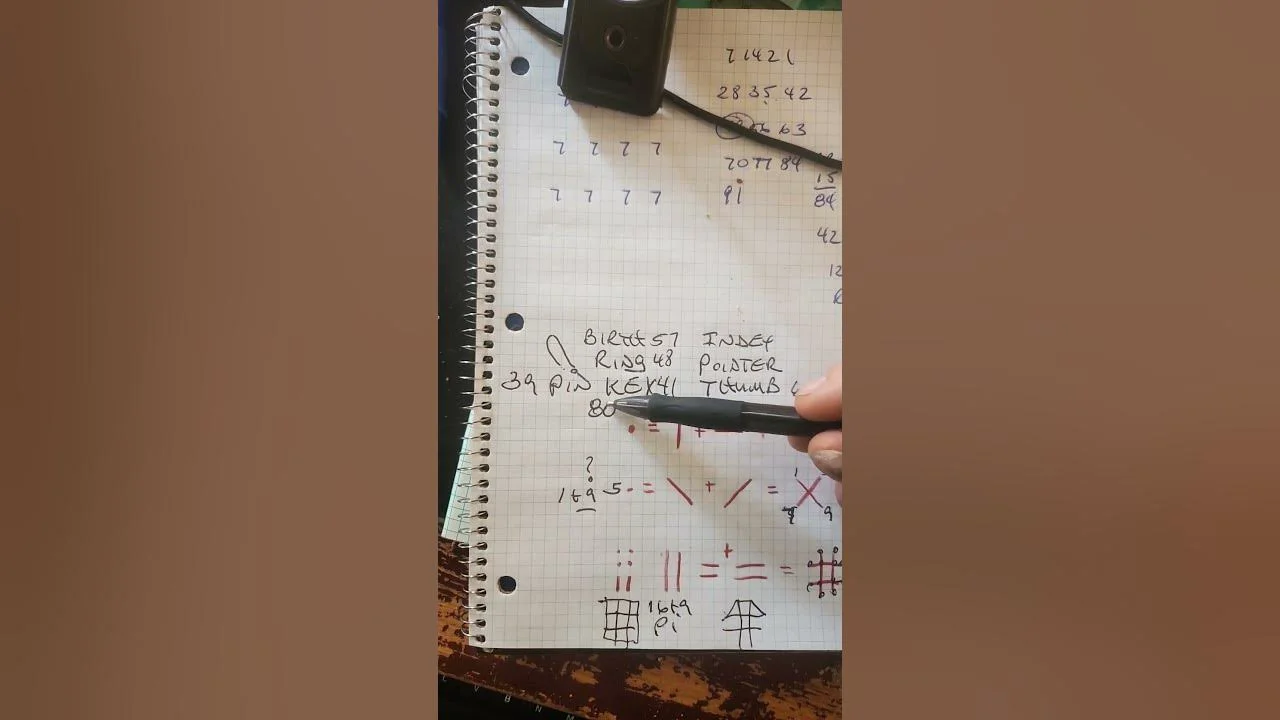 7 14 21
28 35 42
63
70 77 84
91
7 7 7 7
7 7 7 7
15
84
42
12
BIRTH 57 INDEX
RING 48 POINTER
39 PIN KEY 41 THUMB
80
. = | +
?
1 t 9 5 . = \ + / = X
9 9
|| = + = = #
1 to 9
Pi